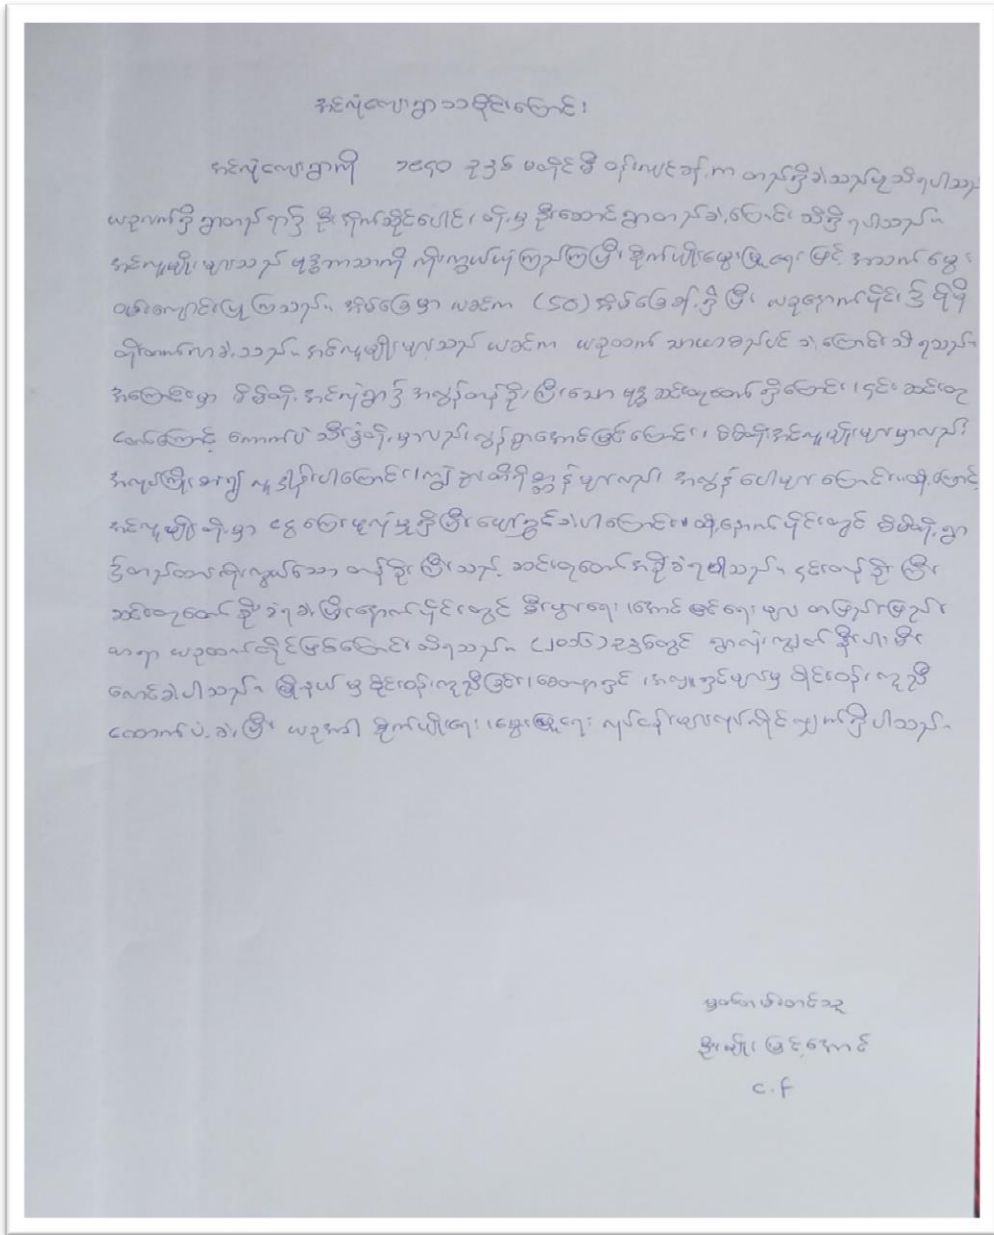 အင်လုံလျောရွာသသမိုင်းကြောင်း
အင်လုံလျောရွာကို ၁၉၄၀ ခုနှစ် မတိုင်မီ ဝန်းကျင်ခန့်က တည်ရှိခဲ့သည်ဟုသိရပါသည်
ယခုလက်ရှိရွာတည်ရာ၌ ဦးတိုက်ဆိုင်ပေါင်း တို့မှ ဦးဆောင်ရွာတည်ခဲ့ကြောင်း သိရှိရပါသည်။
အင်လူမျိုးများသည် ဗုဒ္ဓဘာသာကို ကိုးကွယ်ယုံကြည်ကြပြီး စိုက်ပျိုးမွေးမြူရေးဖြင့် အသက်မွေး
ဝမ်းကျောင်းပြုကြသည်။ အိမ်ခြေမှာ ယခင်က (၄၀) အိမ်ခြေခန့်ရှိပြီး ယခုနောက်ပိုင်း၌ ပိုမို
တိုးတက်လာခဲ့သည်။ အင်လူမျိုးများသည် ယခင်က ယခုထက် သာယာစည်ပင်ခဲ့ကြောင်း သိရသည်။
အကြောင်းမှာ မိမိတို့ အင်လုံရွာ၌ အလွန်တန်ဖိုးကြီးသော ဗုဒ္ဓဆင်းတုတော်ရှိကြောင်း၊ ၎င်းဆင်းတု
တော်ကြောင့် ကောက်ပဲသီးနှံတို့မှာလည်းလွန်စွာအောင်မြင်ကြောင်း၊ မိမိတို့အင်လူမျိုးများမှာလည်း
အလုပ်ကြိုးစား၍ လူဒါန်းပါကြောင်း၊ ကျွဲနွားတိရိစ္ဆာန်များလည်း အလွန်ပေါများကြောင်း၊ ထို့ကြောင့်
အင်လူမျိုးတို့မှာ ငွေကြေးဖူလုံမှုရှိပြီးပျော်ရွှင်ခဲ့ပါကြောင်း။ ထို့နောက်ပိုင်းတွင် မိမိတို့ရွာ
၌တည်ထားကိုးကွယ်သော တန်ဖိုးကြီးသည့် ဆင်းတုတော်အခိုးခံရပါသည်။ ၎င်းတန်ဖိုးကြီး
ဆင်းတုတော် ခိုးခံရခဲ့ပြီးနောက်ပိုင်းတွင် စီးပွားရေး၊ အောင်မြင်ရေးများ တဖြည်းဖြည်း
ယာရာ ယခုထက်တိုင်ဖြစ်ကြောင်းသိရသည်။ (၂၀၁၆)ခုနှစ်တွင် ရွာလုံးကျွတ်နီးပါးမီး
လောင်ခဲ့ပါသည်။ မြို့နယ်မှ ဝိုင်းဝန်းကူညီခြင်း၊ စေတနာရှင်၊ အလှူရှင်များမှ ဝိုင်းဝန်းကူညီ
ထောက်ပံ့ခဲ့ပြီး ယခုအခါ စိုက်ပျိုးရေး၊ မွေးမြူရေး လုပ်ငန်းများလုပ်ကိုင်လျှက်ရှိပါသည်။
မှတ်တမ်းတင်သူ
ဦးမျိုးမြင့်အောင်
C.F